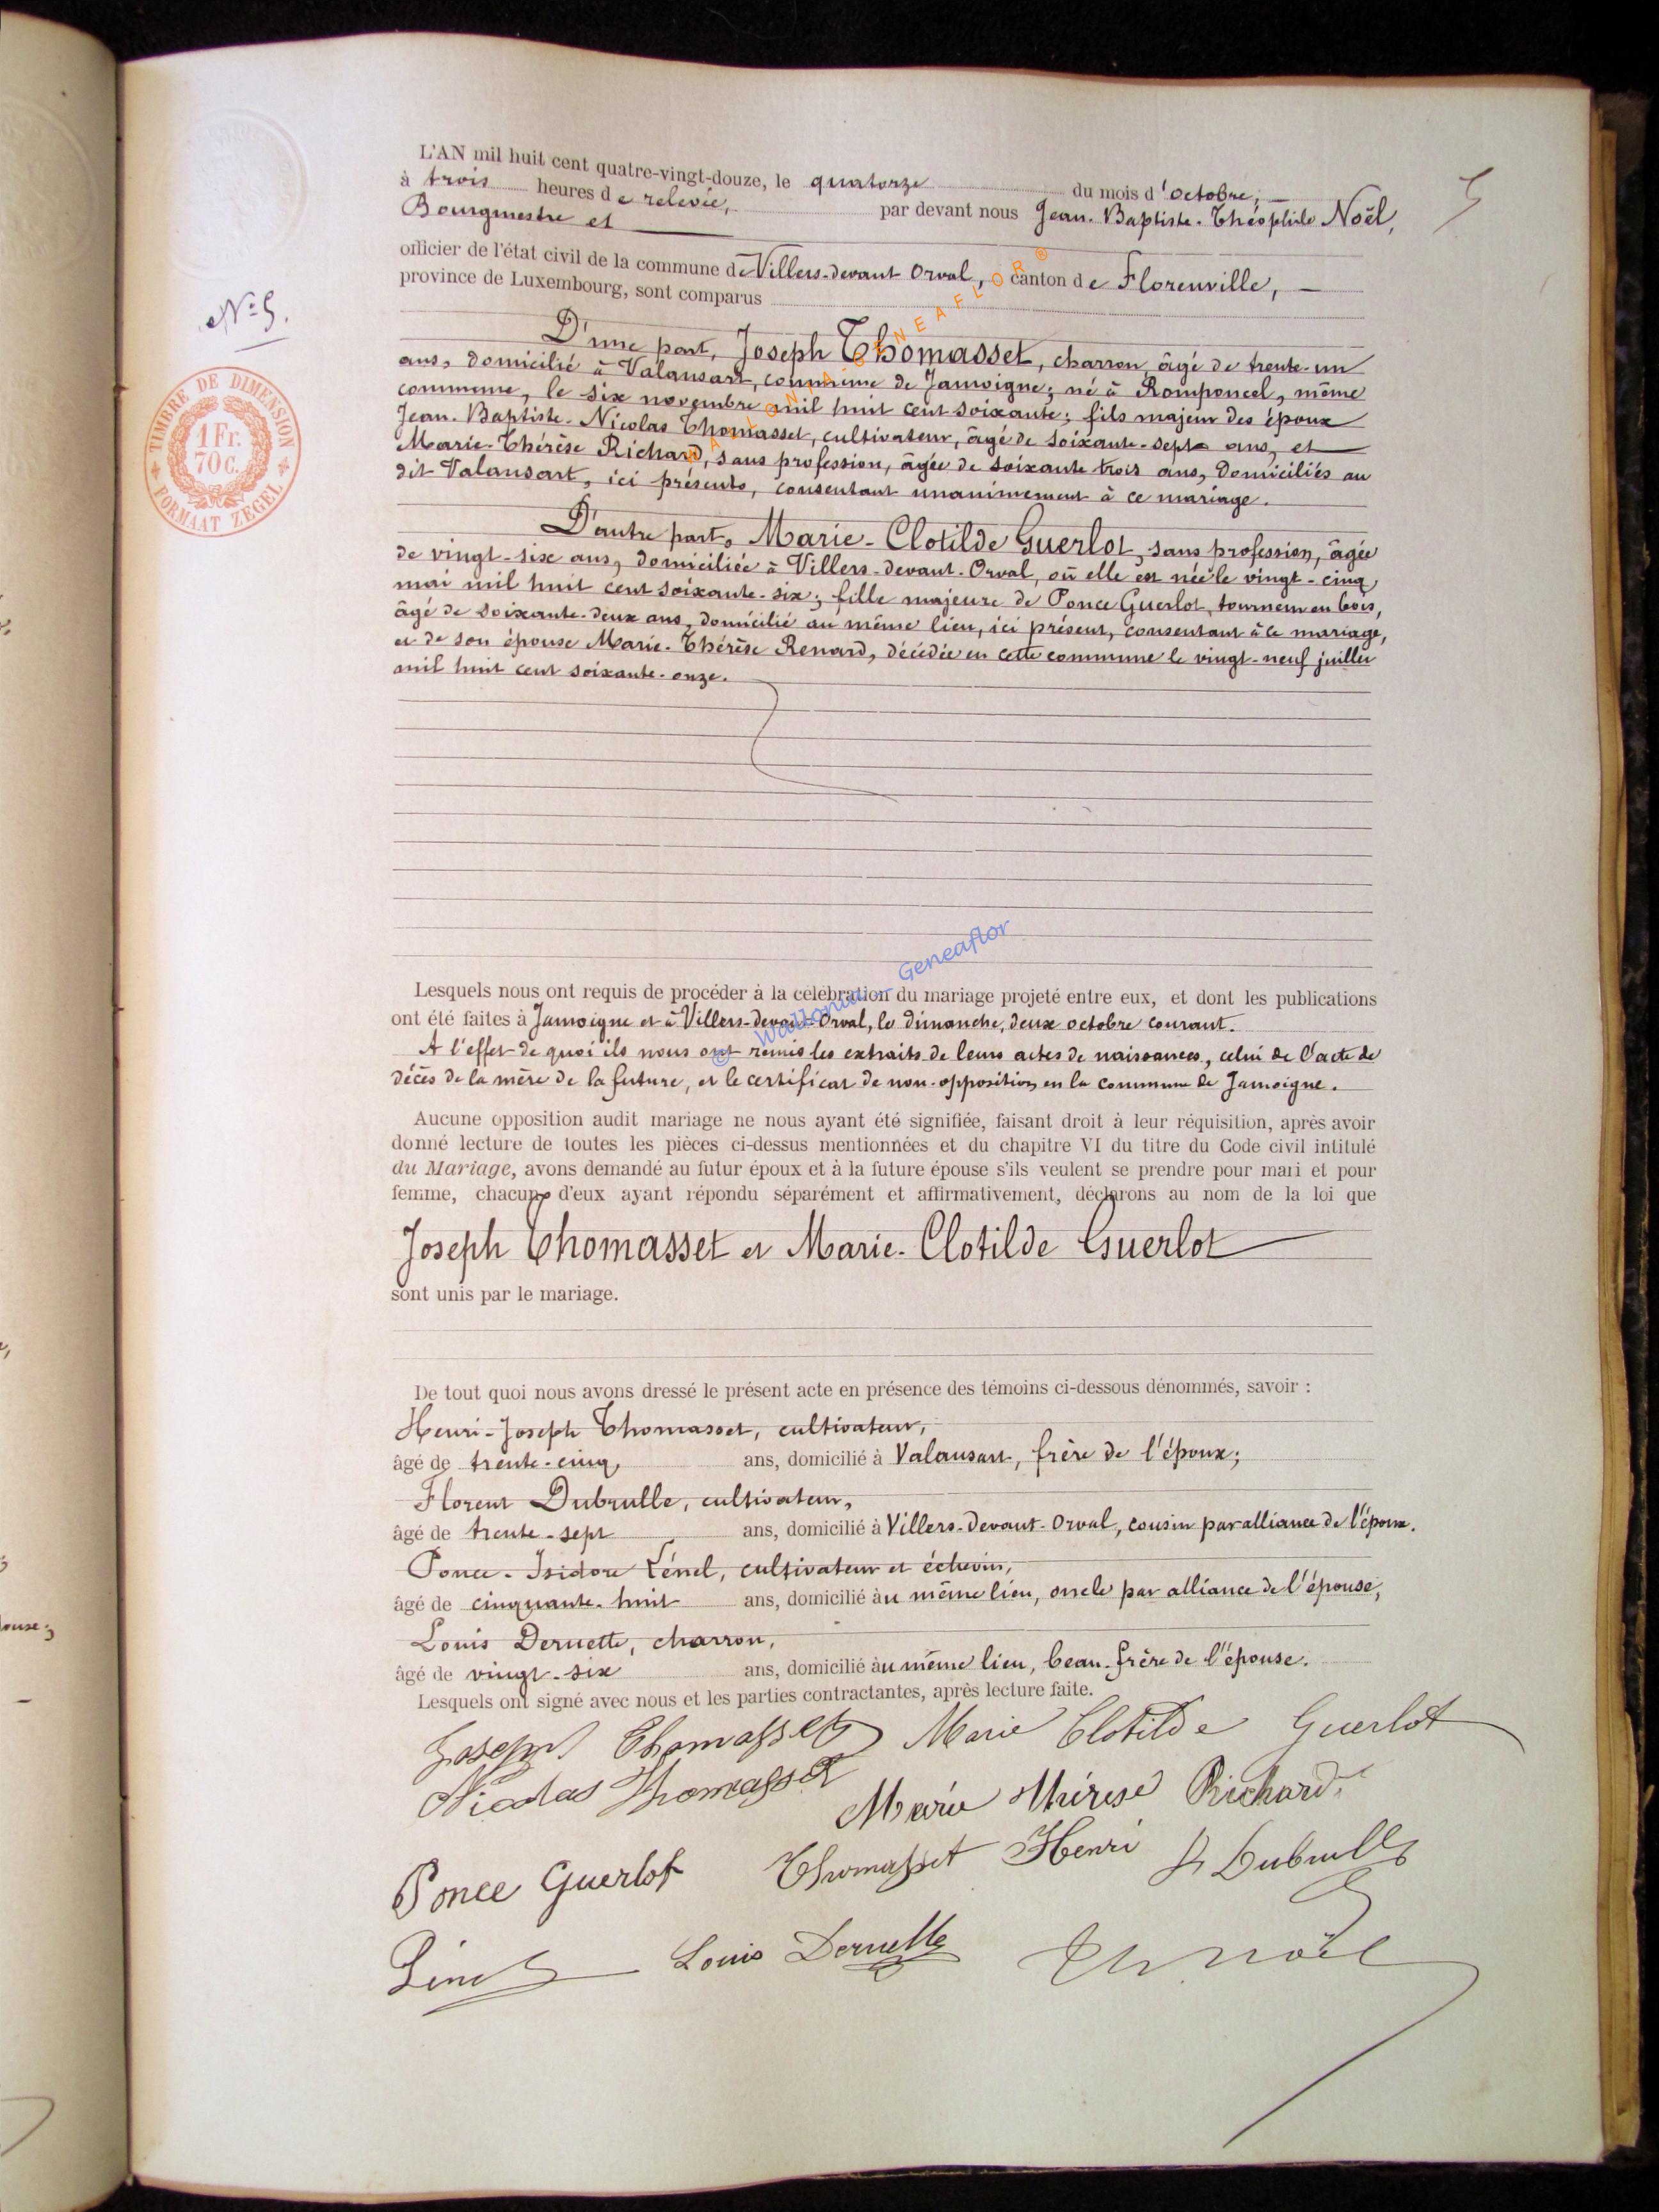 L'AN mil huit cent quatre-vingt-douze, le quatorze du mois d'octobre,
5
à trois heures de relevée, par devant nous Jean-Baptiste-Théophile Noël,
Bourgmestre et
officier de l'état civil de la commune de Villers-devant Orval, canton de Florenville,
province de Luxembourg, sont comparus
N° 5.
D'une part, Joseph Thomasset, charron, âgé de trente-un
ans, domicilié à Valansart, commune de Jamoigne; né à Romponcel, même
commune, le six novembre mil huit cent soixante; fils majeur des époux
Jean-Baptiste-Nicolas Thomasset, cultivateur, âgé de soixante-sept ans, et
Marie-Thérèse Richard, sans profession, âgée de soixante trois ans, domiciliés au
dit Valansart, ici présents, consentant unanimement à ce mariage.
TIMBRE DE DIMENSION
1 Fr.
70 C.
FORMAAT ZEGEL
D'autre part, Marie-Clotilde Guerlot, sans profession, âgée
de vingt-six ans, domiciliée à Villers-devant-Orval, où elle est née le vingt-cinq
mai mil huit cent soixante-six; fille majeure de Ponce Guerlot, tourneur en bois,
âgé de soixante-deux ans, domicilié au même lieu, ici présent, consentant à ce mariage,
et de son épouse Marie-Thérèse Renard, décédée en cette commune le vingt-neuf juillet
mil huit cent soixante-onze.
Lesquels nous ont requis de procéder à la célébration du mariage projeté entre eux, et dont les publications
ont été faites à Jamoigne et à Villers-devant-Orval, le dimanche, deux octobre courant.
A l'effet de quoi ils nous ont remis les extraits de leurs actes de naissances, celui de l'acte de
décès de la mère de la future, et le certificat de non-opposition en la commune de Jamoigne.
Aucune opposition audit mariage ne nous ayant été signifiée, faisant droit à leur réquisition, après avoir
donné lecture de toutes les pièces ci-dessus mentionnées et du chapitre VI du titre du Code civil intitulé
du Mariage, avons demandé au futur époux et à la future épouse s'ils veulent se prendre pour mari et pour
femme, chacun d'eux ayant répondu séparément et affirmativement, déclarons au nom de la loi que
Joseph Thomasset et Marie-Clotilde Guerlot
sont unis par le mariage.
De tout quoi nous avons dressé le présent acte en présence des témoins ci-dessous dénommés, savoir :
Henri-Joseph Thomasset, cultivateur,
âgé de trente-cinq ans, domicilié à Valansart, frère de l'époux;
Florent Dubrulle, cultivateur,
âgé de trente-sept ans, domicilié à Villers-devant-Orval, cousin par alliance de l'époux.
Ponce-Isidore Lénel, cultivateur et échevin,
âgé de cinquante-huit ans, domicilié au même lieu, oncle par alliance de l'épouse,
Louis Deruette, charron,
âgé de vingt-six ans, domicilié au même lieu, beau-frère de l'épouse.
Lesquels ont signé avec nous et les parties contractantes, après lecture faite.
Joseph Thomasset Marie Clotilde Guerlot
Nicolas Thomasset Marie Thérese Richard
Ponce Guerlot Thomasset Henri Dubrulle
Louis Deruette Th Noël
© Wallonia - Geneaflor